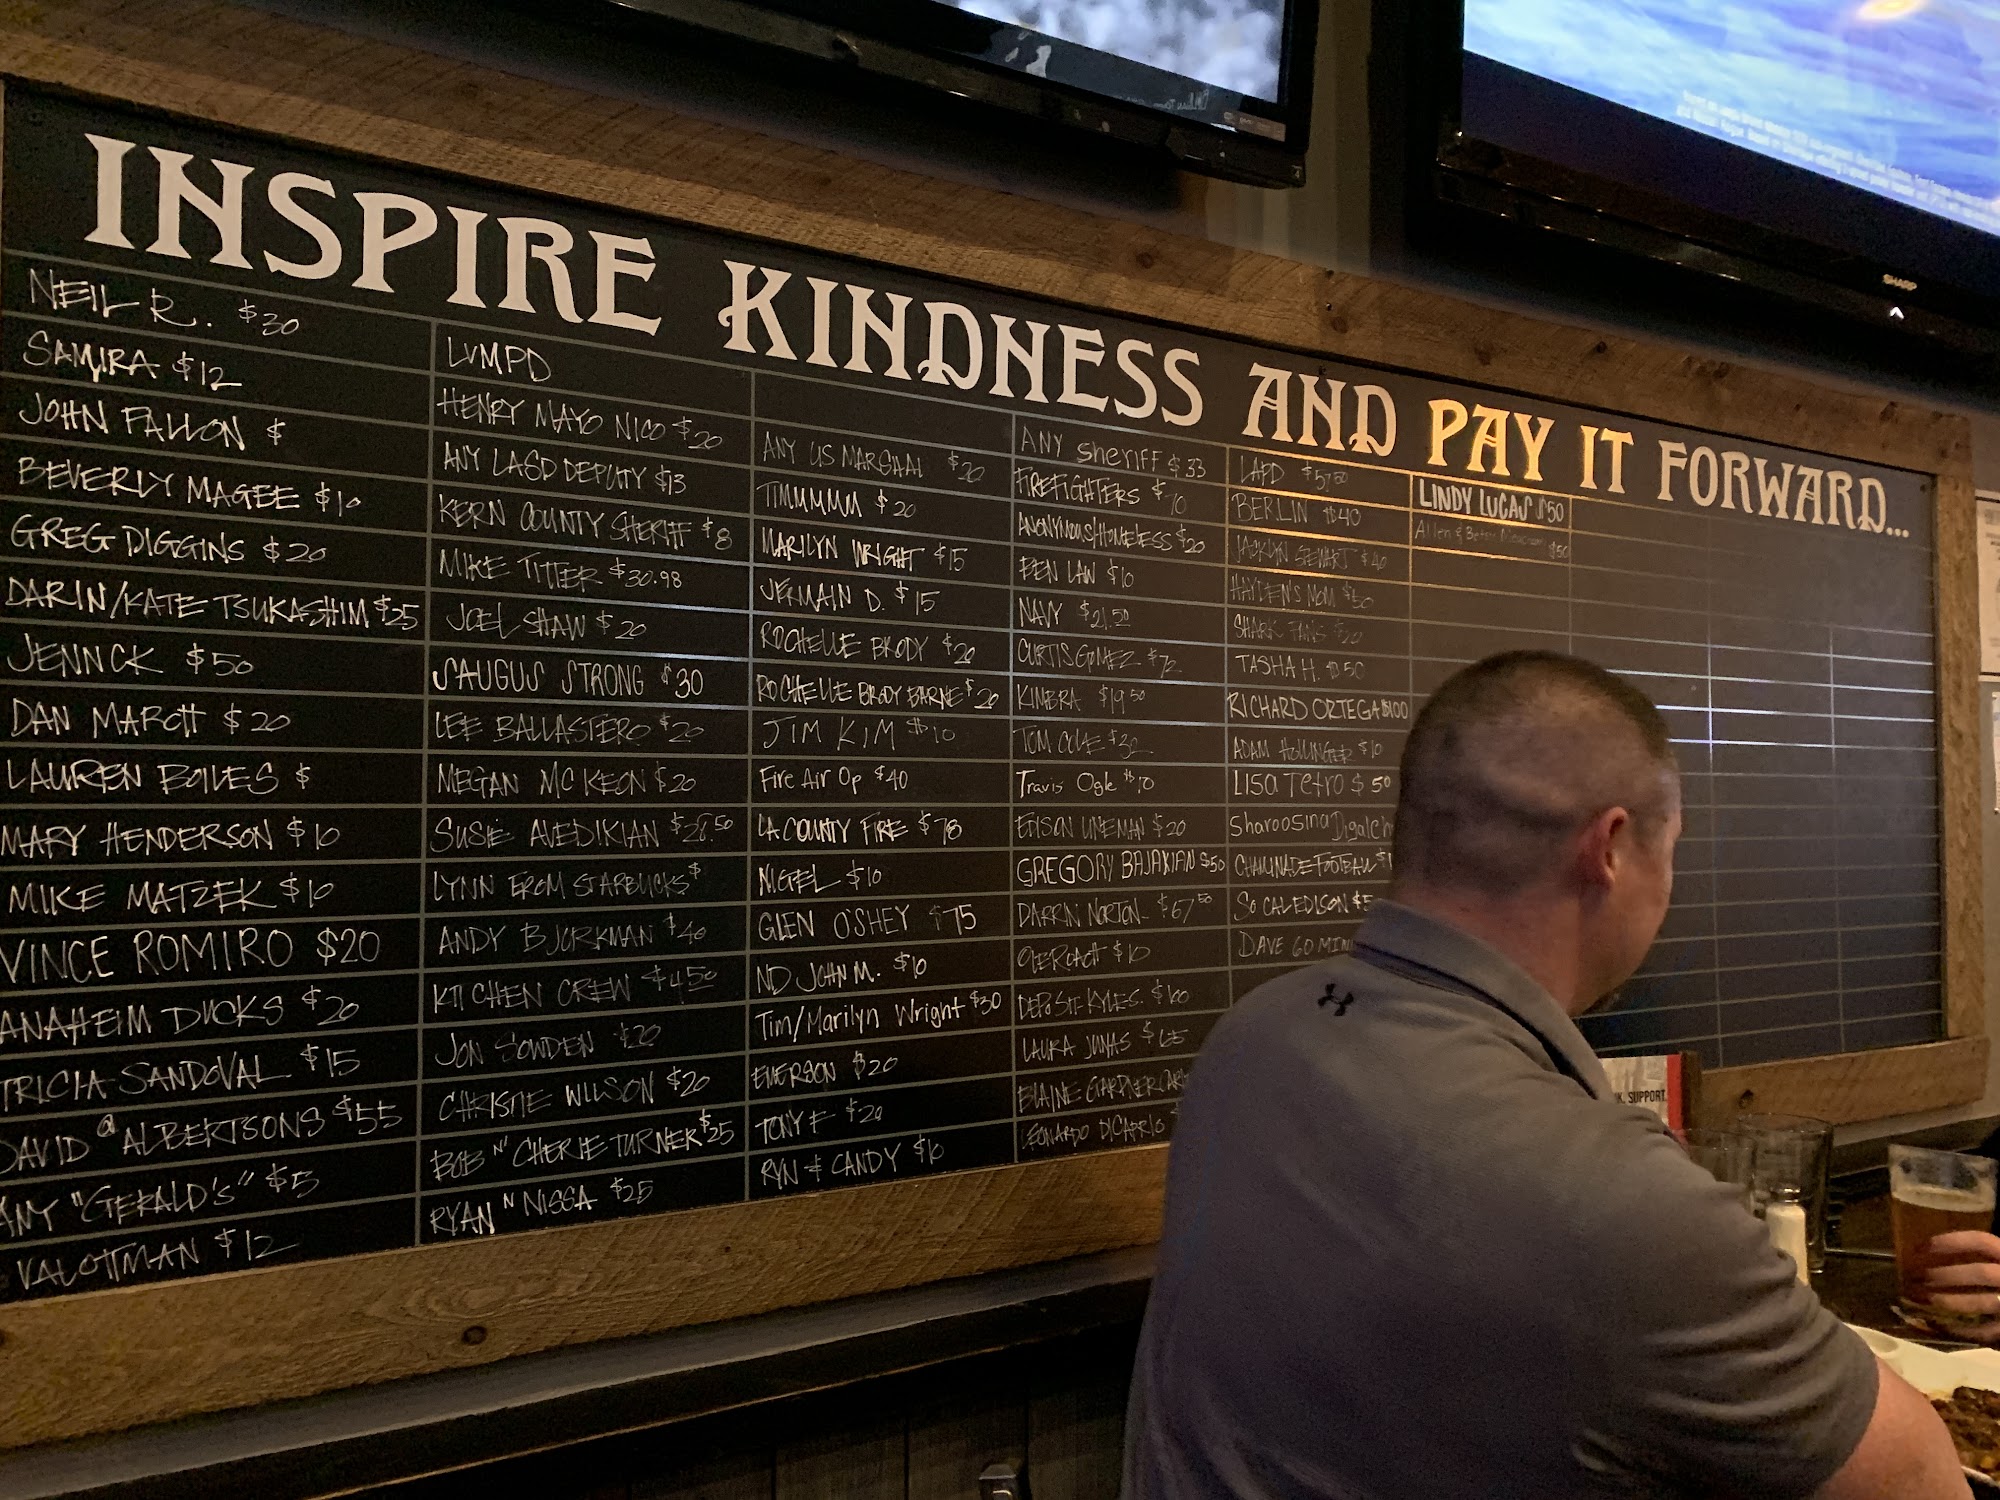 INSPIRE KINDNESS AND PAY IT FORWARD...
NEIL R. $30
SAMIRA $12
JOHN FALLON $
BEVERLY MAGEE $10
GREG DIGGINS $20
DARIN/KATE TSUKASHIM $25
JENNCK $50
DAN MAROTT $20
LAUREN BOILES $
MARY HENDERSON $10
MIKE MATZEK $10
VINCE ROMIRO $20
ANAHEIM DUCKS $20
TRICIA SANDOVAL $15
DAVID @ ALBERTSONS $55
ANY "GERALD'S" $5
VALOTTMAN $12
LVMPD
HENRY MAYO NICO $20
ANY LASD DEPUTY $13
KERN COUNTY SHERIFF $8
MIKE TITTER $30.98
JOEL SHAW $20
SAUGUS STRONG $30
LEE BALLASTERO $20
MEGAN MCKEON $20
SUSIE AVEDIKIAN $28.50
LYNN FROM STARBUCKS $
ANDY BJORKMAN $40
KITCHEN CREW $4.50
JON SOWDEN $20
CHRISTIE WILSON $20
BOB "N" CHERIE TURNER $25
RYAN "N" NISSA $25
ANY US MARSHAL $20
TIMMMMM $20
MARILYN WRIGHT $15
JERMAIN D. $15
ROCHELLE BRODY $20
ROCHELLE BRODY BARNE $20
JIM KIM $10
Fire Air Op $40
LA COUNTY FIRE $78
NIGEL $10
GLEN O'SHEY $75
ND JOHN M. $10
Tim/Marilyn Wright $30
EMERSON $20
TONY F $20
RYN & CANDY $10
ANY SHERIFF $33
FIREFIGHTERS $70
ANONYMOUS/HOMELESS $20
BEN LAW $10
NAVY $21.50
CURTIS GOMEZ $72
KIMBRA $19.50
TOM COLE $32
Travis Ogle $10
EDISON LINEMAN $20
GREGORY BAJAKIAN $50
DARRIN NORTON $67.50
$10
$100
LAURA JUNAS $65
BLAINE GARDNER
LEONARDO DICAPRIO
LAPD $57.50
BERLIN $40
JACKLYN STEWART $40
HAYDEN'S MOM $50
SHARK FANS $20
TASHA H. $50
RICHARD ORTEGA $100
ADAM HOLLINGER $10
LISA TETRO $50
Sharoosina Digalch
CHAMINADE FOOTBALL $1
SO CAL EDISON $5
DAVE 60 MIN
LINDY LUCAS $50
Allen & Betsy $50
SHARP
SUPPORT